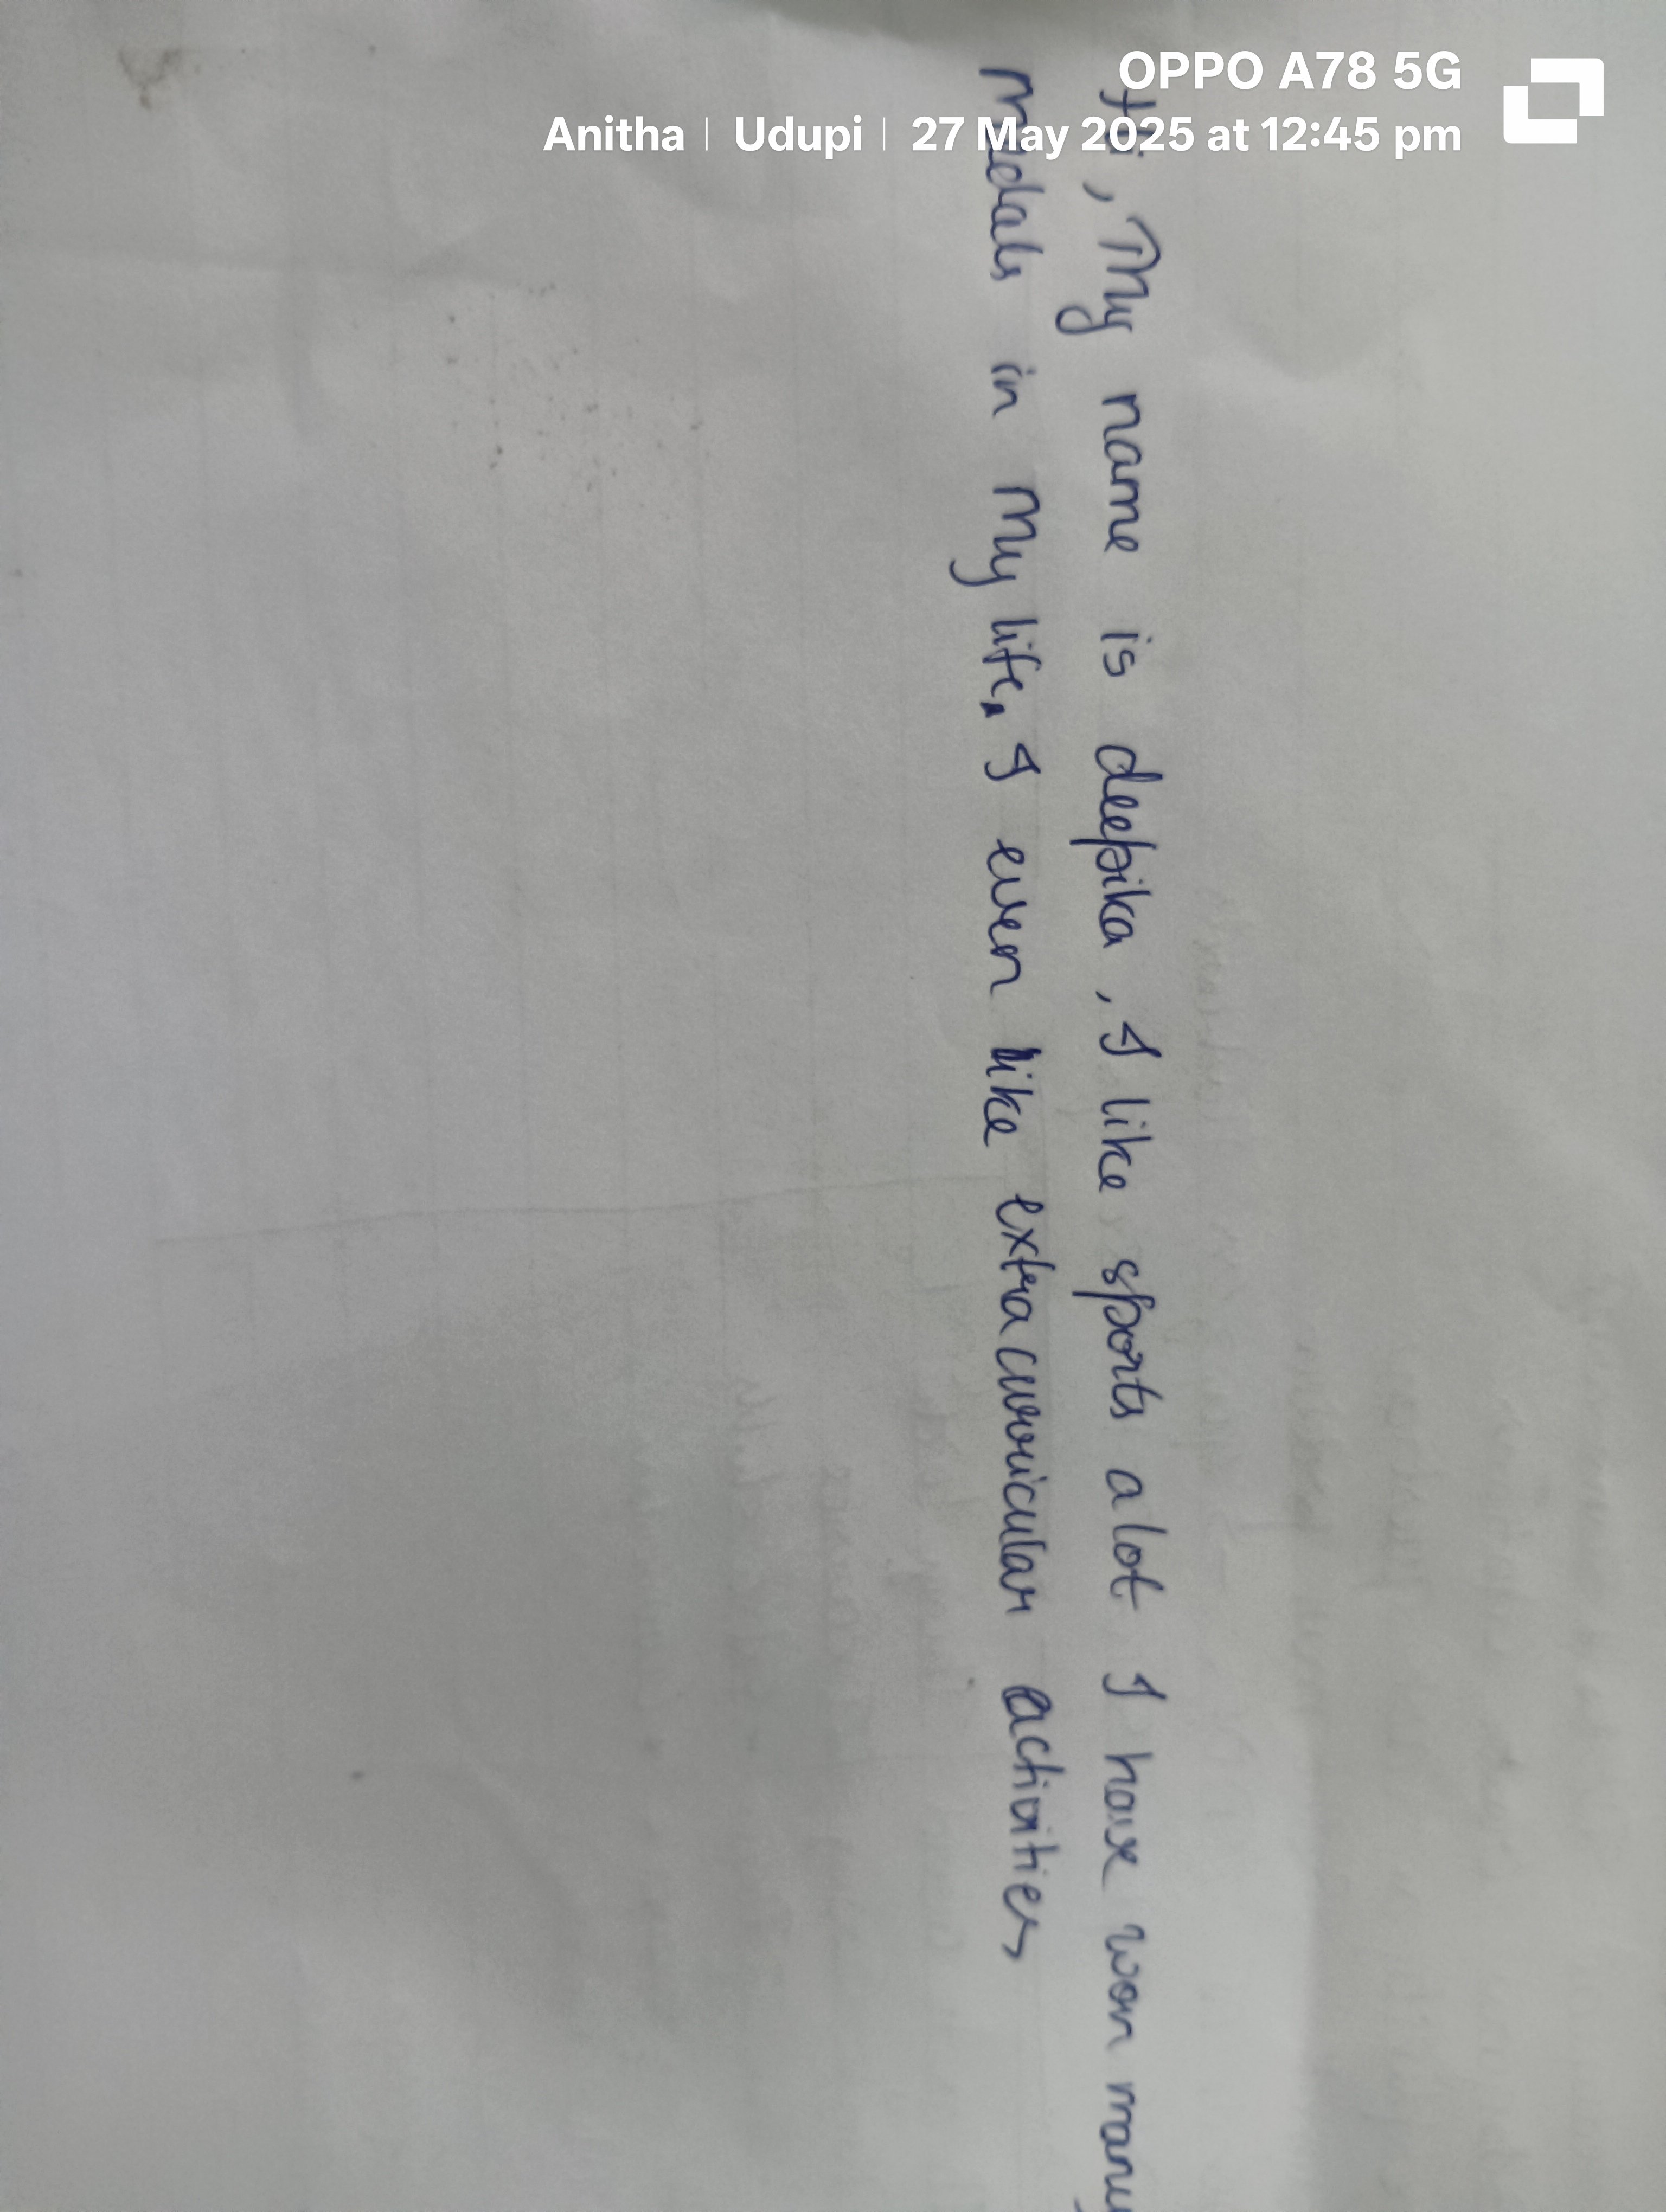 OPPO A78 5G
Anitha | Udupi | 27 May 2025 at 12:45 pm
Hi, My name is deepika, I like sports a lot I have won many
medals in My life. I even like extra curricular activities